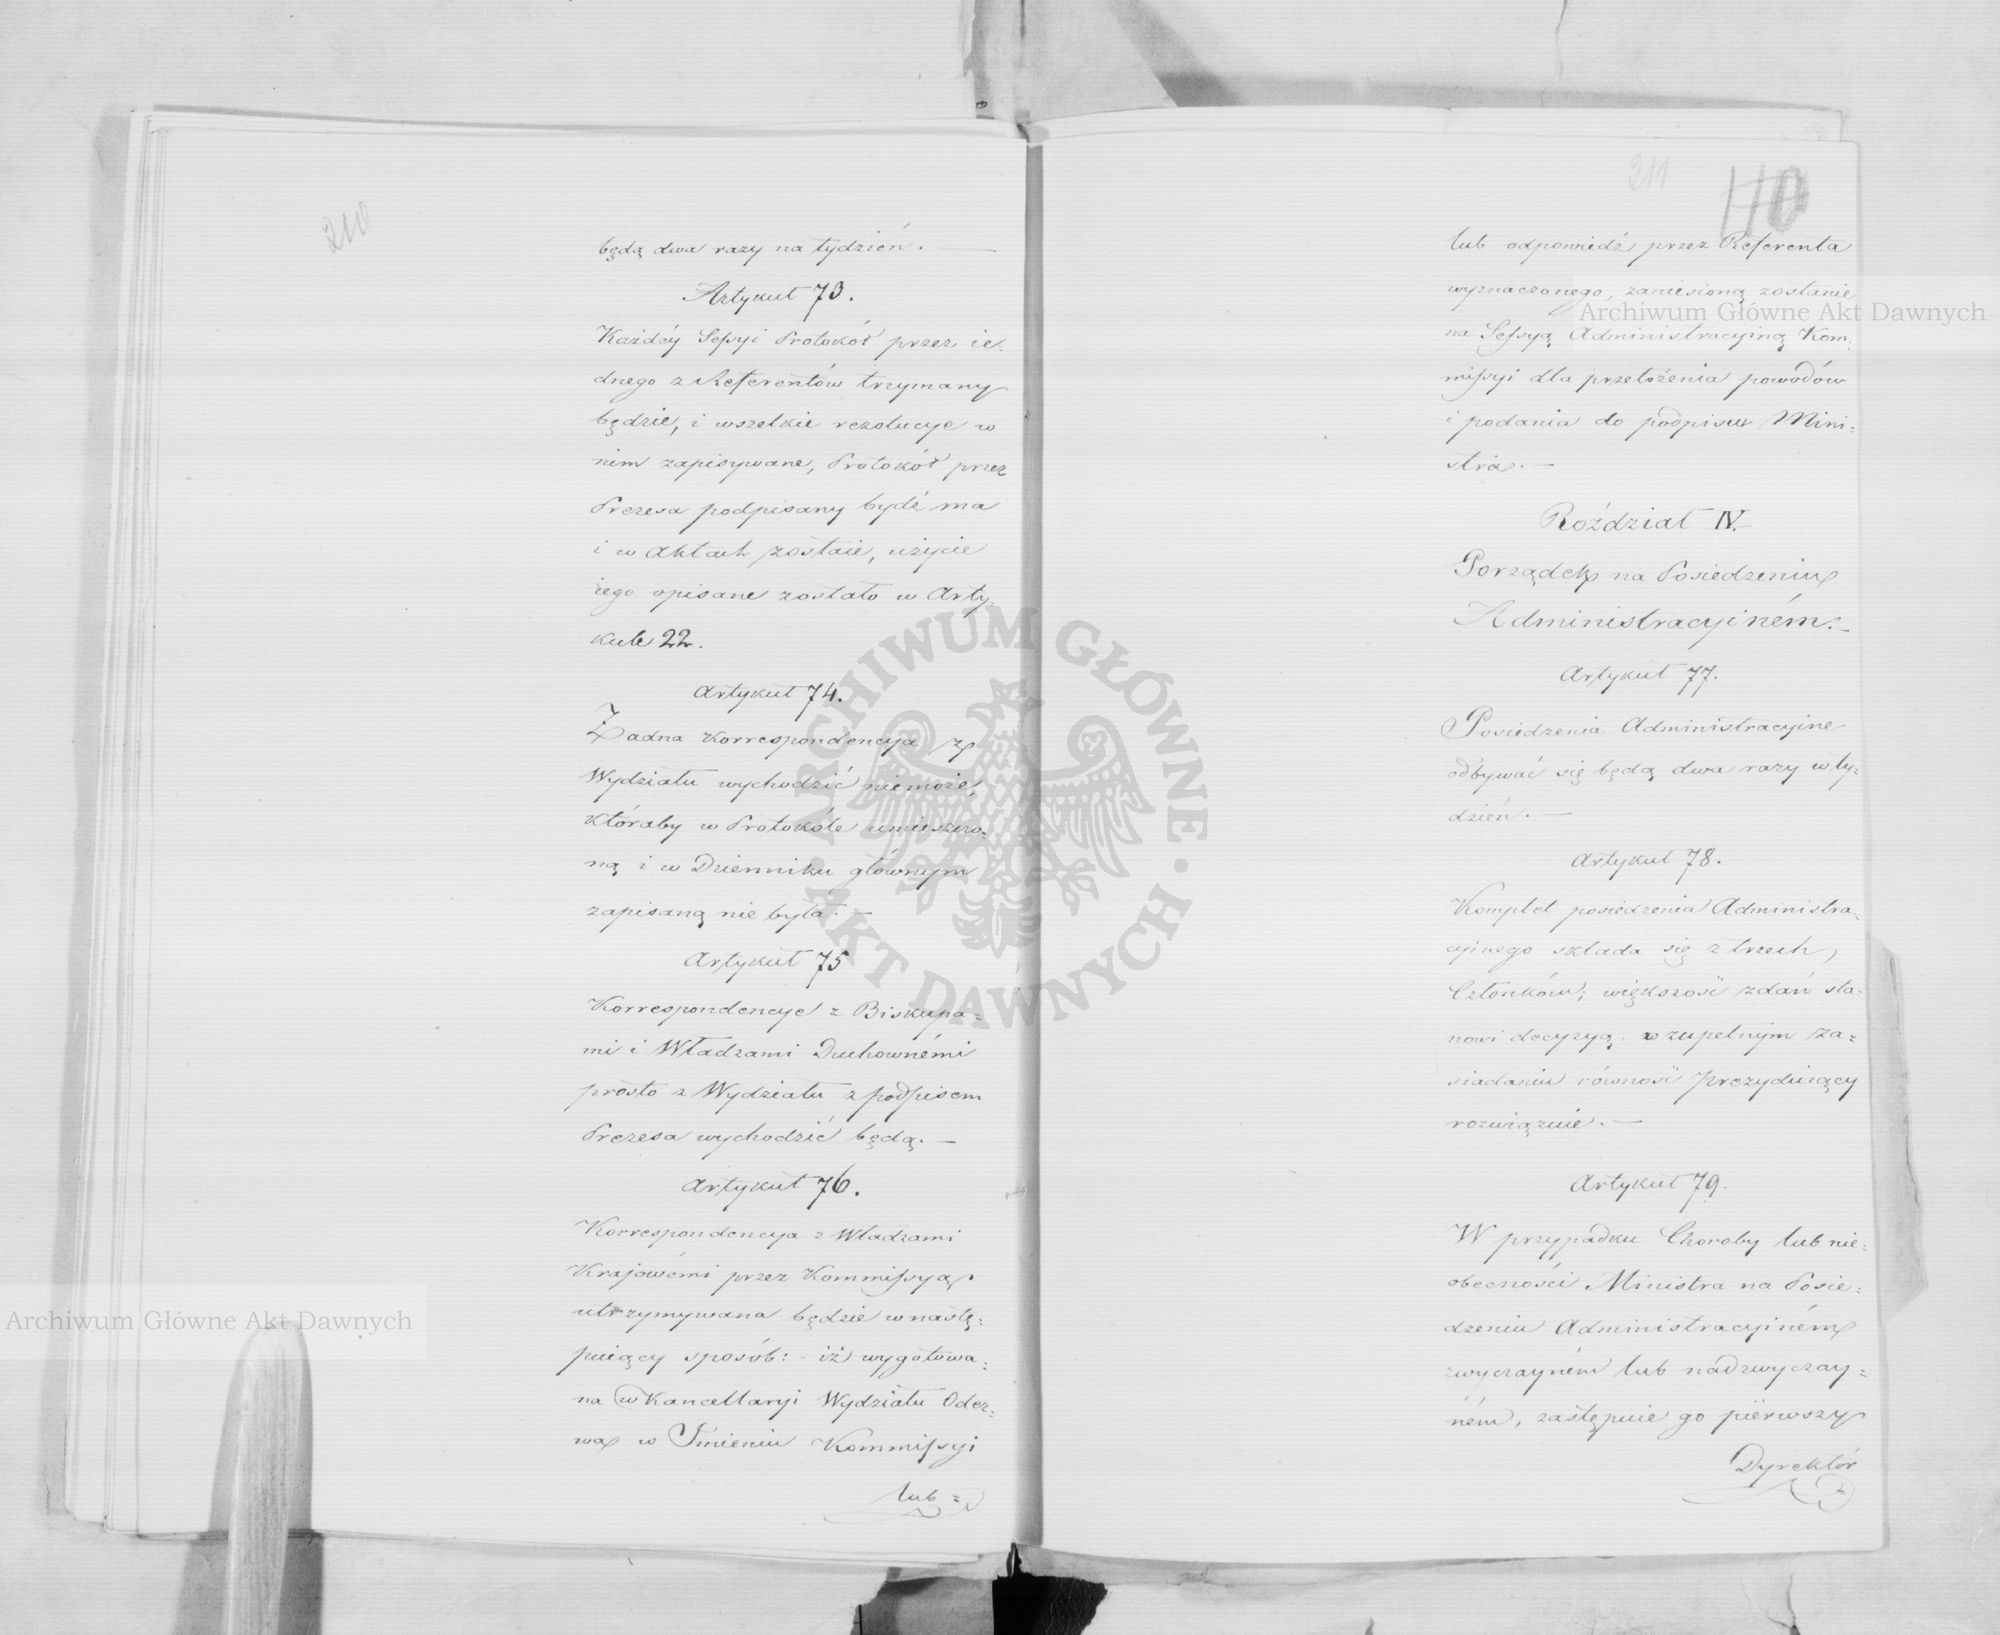 210
będą dwa razy na tydzień. —
Artykuł 73.
Każdéy Sessyi Protokół przez ie-
dnego z Referentów trzymany
będzie, i wszelkie rezolucye w
nim zapisywane, Protokół przez
Prezesa podpisany bydź ma
i w Aktach zostaie, użycie
iego opisane zostało w Arty-
kule 22.
Artykuł 74.
Żadna Korrespondencya z
Wydziału wychodzić niemoże,
któraby w Protokóle umieszczo-
ną i w Dzienniku głównym
zapisaną nie była. —
Artykuł 75
Korrespondencye z Biskupa=
mi i Władzami Duchownémi
prosto z Wydziału z podpisem
Prezesa wychodzić będą. —
Artykuł 76.
Korrespondencya z Władzami
Krajowémi przez Kommissyą
utrzymywana będzie w nastę=
puiący sposób: - iż wygotowa=
na w Kancellaryi Wydziału Odez=
wa w Imieniu Kommissyi
lub =
211
110
lub odpowiedź przez Referenta
wyznaczonego, zaniesioną zostanie
na Sessyą Administracyiną Kom-
missyi dla przełożenia powodów
i podania do podpisu Mini=
stra. —
Rozdział IV. —
Porządek na Posiedzeniu
Administracyiném. —
Artykuł 77.
Posiedzenia Administracyine
odbywać się będą dwa razy w ty=
dzień. —
Artykuł 78.
Komplet posiedzenia Administra-
cyinego składa się z trzech
Członków; większość zdań sta-
nowi decyzyą, w zupełnym za=
siadaniu równość prezyduiący
rozwiązuie. —
Artykuł 79.
W przypadku Choroby lub nie=
obecności Ministra na Posie=
dzeniu Administracyiném
zwyczayném lub nadzwyczay=
ném, zastępuie go pierwszy
Dyrektór
Archiwum Główne Akt Dawnych
Archiwum Główne Akt Dawnych
ARCHIWUM GŁÓWNE · AKT DAWNYCH ·